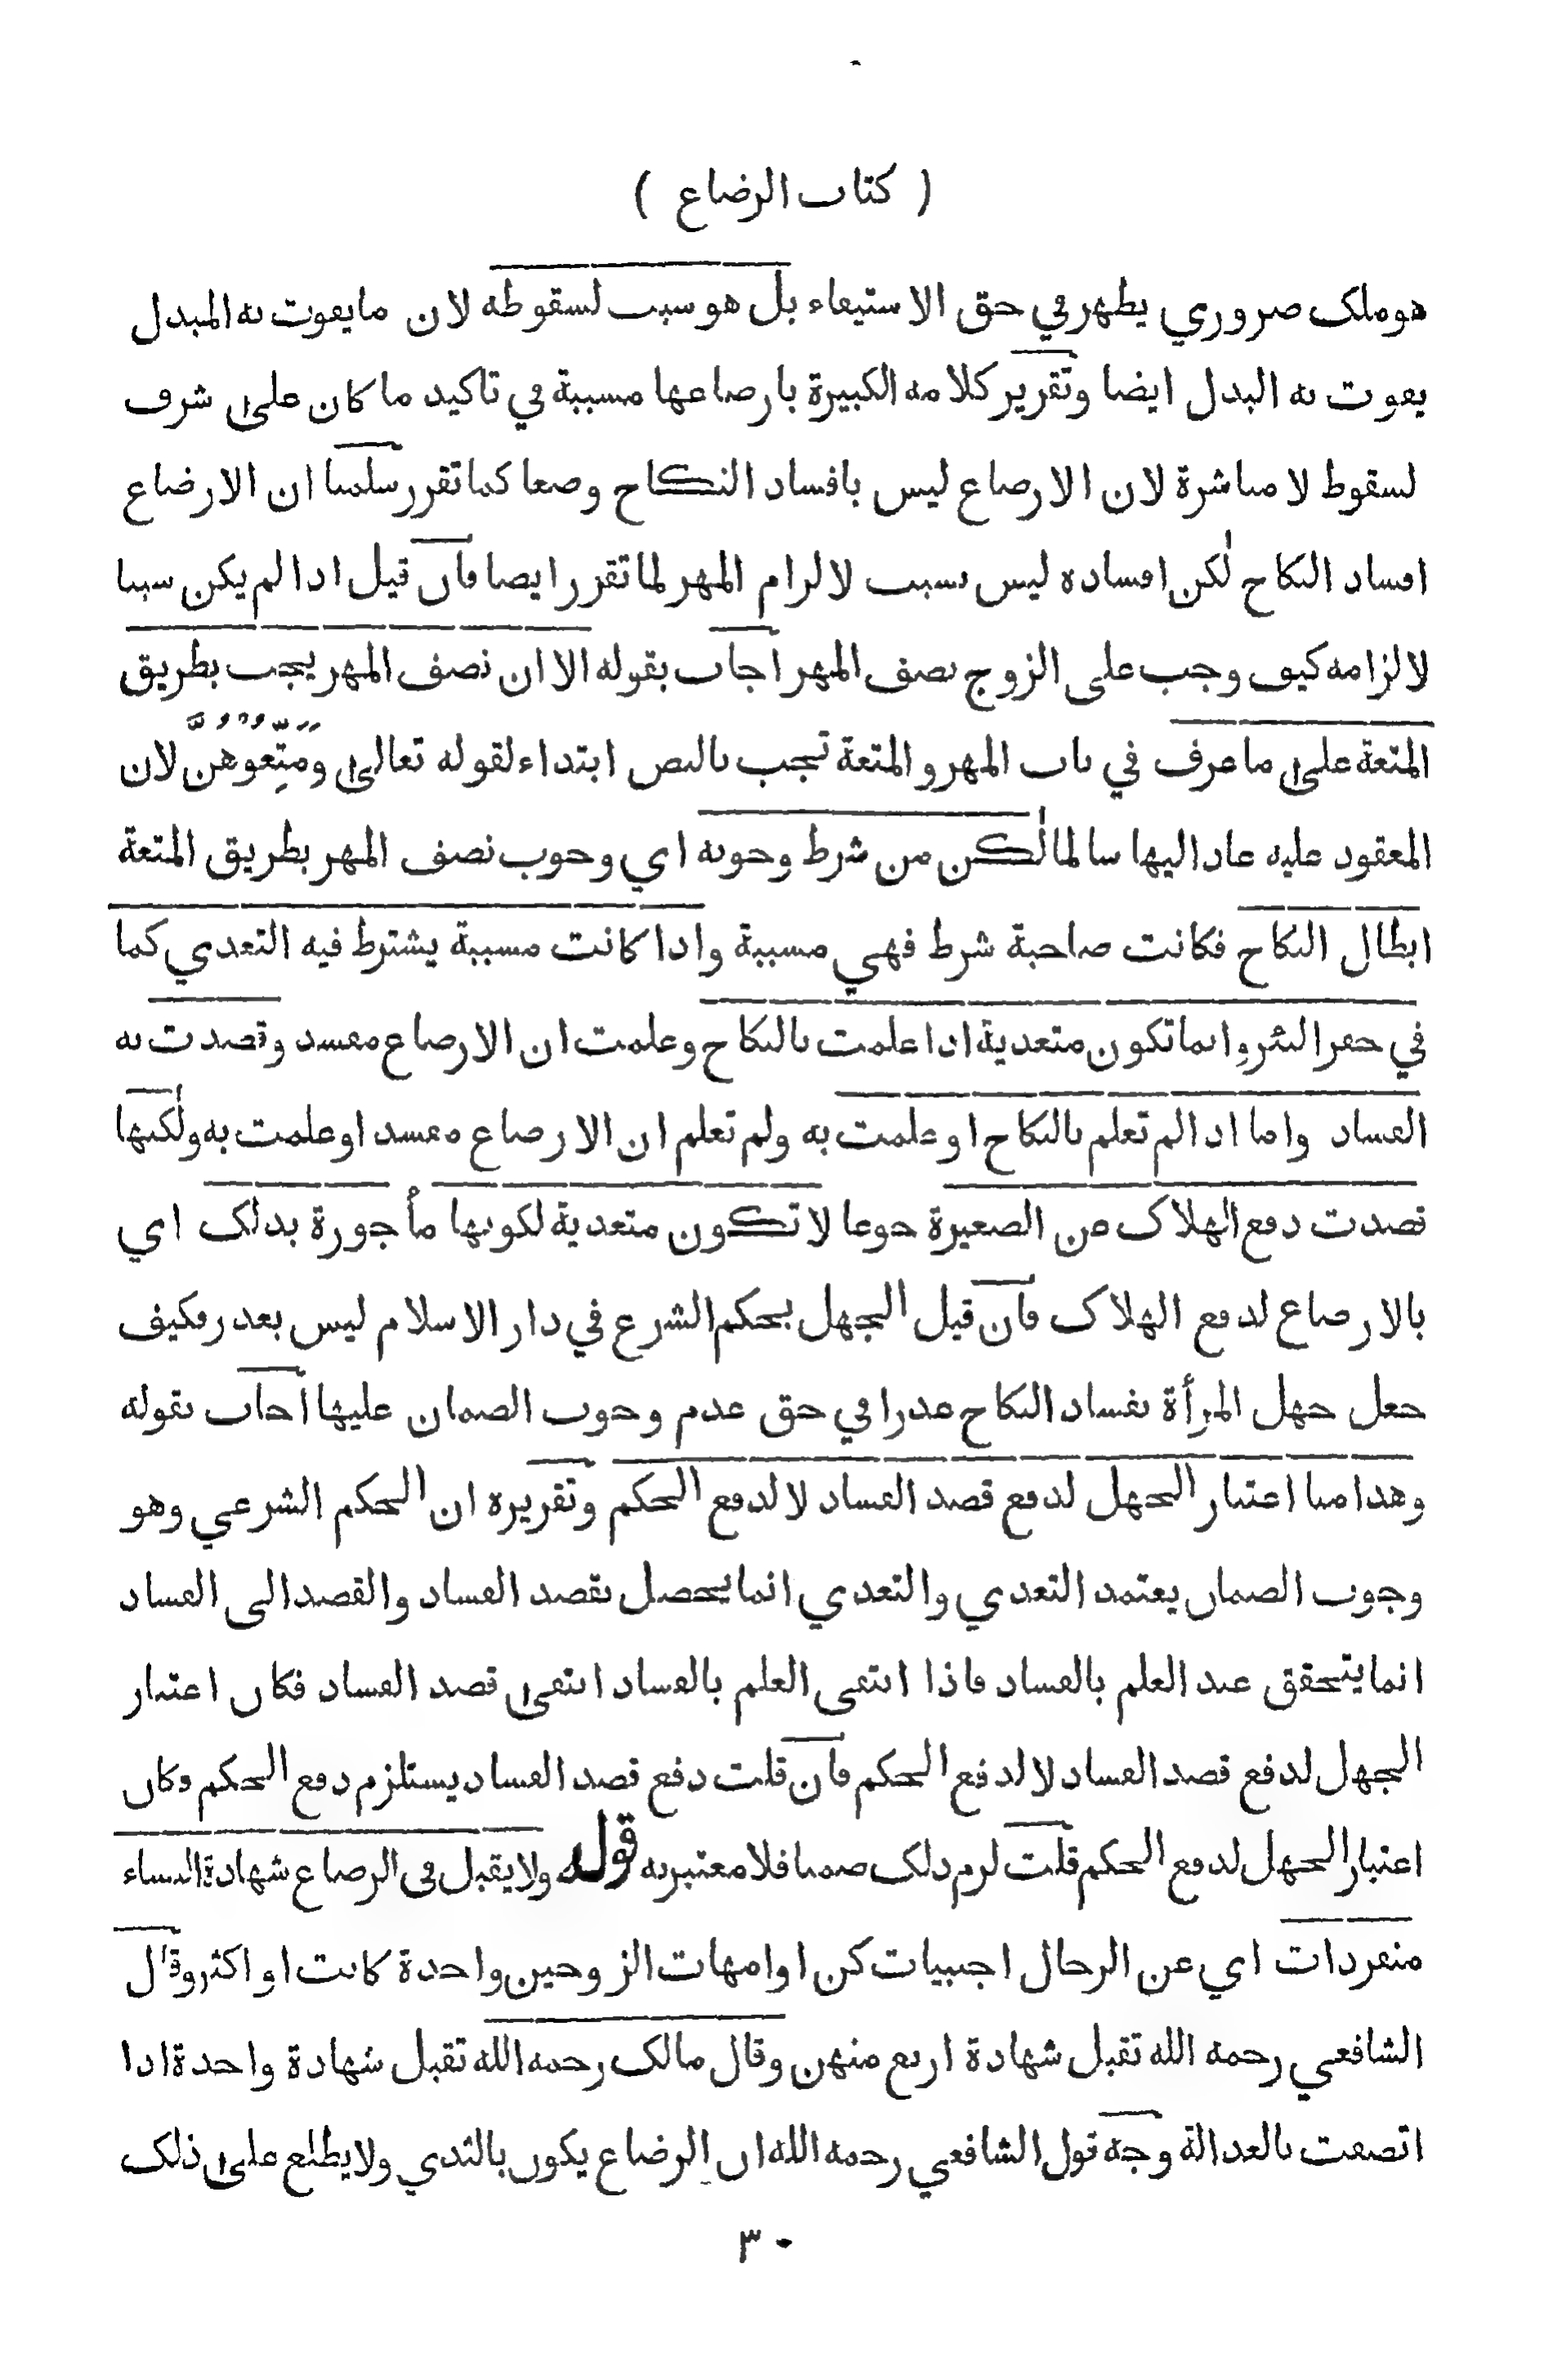 ( كتاب الرضاع )
هو ملك ضروري يظهر في حق الاستيفاء بل هو سبب لسقوطه لان ما يفوت به المبدل
يفوت به البدل ايضا وتقرير كلامه الكبيرة بارضاعها مسببة في تاكيد ما كان على شرف
لسقوط لا مباشرة لان الارضاع ليس بافساد النكاح وضعا كما تقرر سلمنا ان الارضاع
افساد النكاح لكن افساده ليس بسبب لالزام المهر لما تقرر ايضا فان قيل اذا لم يكن سببا
لالزامه كيف وجب على الزوج نصف المهر اجاب بقوله الا ان نصف المهر يجب بطريق
المتعة على ما عرف في باب المهر والمتعة تجب بالنص ابتداء لقوله تعالى وَمَتِّعُوهُنَّ لان
المعقود عليه عاد اليها سالما لكن من شرط وجوبه اي وجوب نصف المهر بطريق المتعة
ابطال النكاح فكانت صاحبة شرط فهي مسببة واذا كانت مسببة يشترط فيه التعدي كما
في حفر البئر وانما تكون متعدية اذا علمت بالنكاح وعلمت ان الارضاع مفسد وقصدت به
الفساد واما اذا لم تعلم بالنكاح او علمت به ولم تعلم ان الارضاع مفسد او علمت به ولكنها
قصدت دفع الهلاك عن الصغيرة جوعا لا تكون متعدية لكونها مأجورة بذلك اي
بالارضاع لدفع الهلاك فان قيل الجهل بحكم الشرع في دار الاسلام ليس بعذر فكيف
جعل جهل المرأة بفساد النكاح عذرا في حق عدم وجوب الضمان عليها اجاب بقوله
وهذا منا اعتبار الجهل لدفع قصد الفساد لا لدفع الحكم وتقريره ان الحكم الشرعي وهو
وجوب الضمان يعتمد التعدي والتعدي انما يحصل بقصد الفساد والقصد الى الفساد
انما يتحقق عند العلم بالفساد فاذا انتفى العلم بالفساد انتفى قصد الفساد فكان اعتبار
الجهل لدفع قصد الفساد لا لدفع الحكم فان قلت دفع قصد الفساد يستلزم دفع الحكم فكان
اعتبار الجهل لدفع الحكم قلت لزم ذلك ضمنا فلا معتبر به قوله ولا يقبل في الرضاع شهادة النساء
منفردات اي عن الرجال اجنبيات كن او امهات الزوجين واحدة كانت او اكثر وقال
الشافعي رحمه الله تقبل شهادة اربع منهن وقال مالك رحمه الله تقبل شهادة واحدة اذا
اتصفت بالعدالة وجه قول الشافعي رحمه الله ان الرضاع يكون بالثدي ولا يطلع على ذلك
٣٠